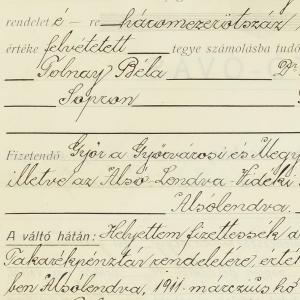 rendelet é – re háromezerötszáz
értéke felvétetett tegye számolásba tudó
Tolnay Béla Dr
Sopron
Fizetendő Győr a Győrvárosi és Megy
illetve az Alsó-Lendva-Vidéki
Alsólendva.
A váltó hátán: Helyettem fizettessék a
Takarékpénztár rendeletére, érték
ben Alsólendva, 1911. márczius hó